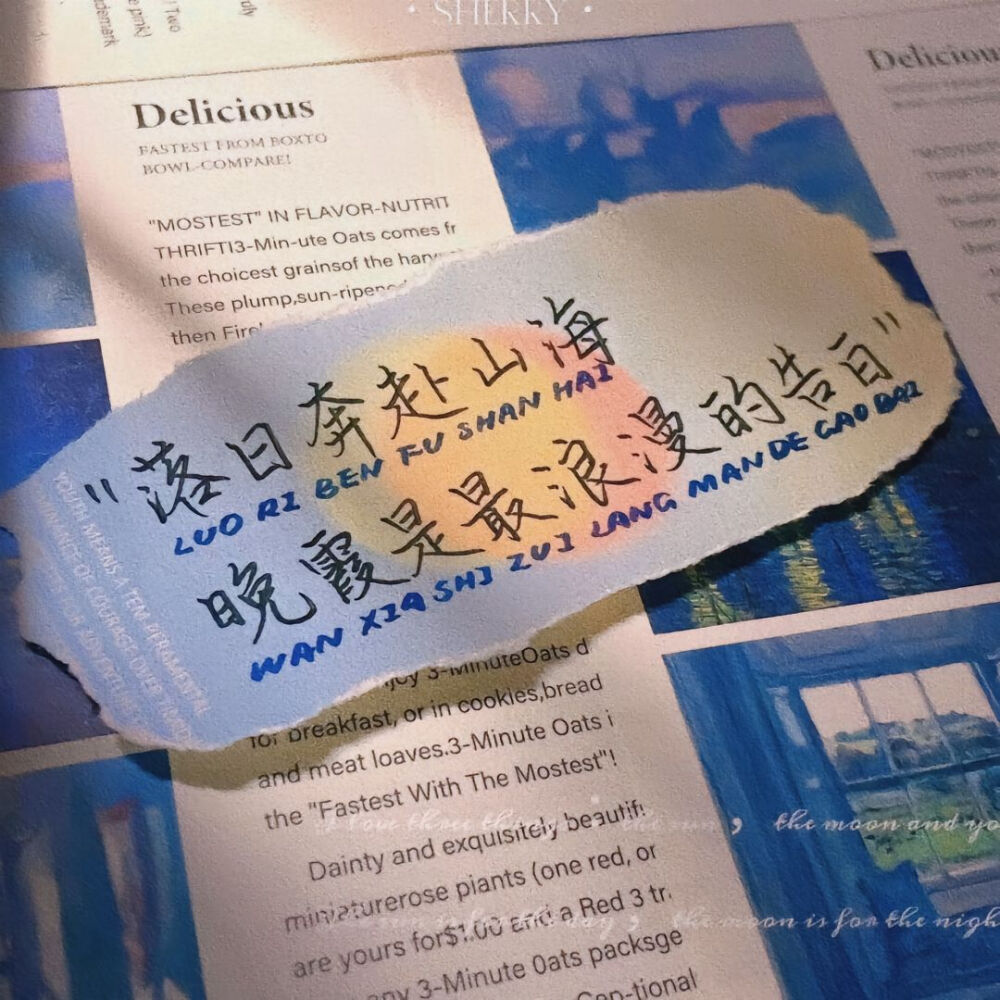 SHERRY
Two
Delicious
FASTEST FROM BOXTO
BOWL-COMPARE!
"MOSTEST" IN FLAVOR-NUTRIT
THRIFTI3-Min-ute Oats comes fr
the choicest grainsof the harv
These plump,sun-ripened
then Firel
Delicious
"落日奔赴山海
LUO RI BEN FU SHAN HAI
晚霞是最浪漫的告白"
WAN XIA SHI ZUI LANG MAN DE GAO BAI
YOUTH MEANS A TEMPERAMENTAL
OF COURAGE OVER
FOR ADVENTURE
joy 3-MinuteOats d
for breakfast, or in cookies,bread
and meat loaves.3-Minute Oats i
the "Fastest With The Mostest"!
I love three things the sun , the moon and yo
Dainty and exquisitely beautifu
miniaturerose piants (one red, or
the day , the moon is for the nigh
are yours for$1.00 and a Red 3 tr.
any 3-Minute 0ats packsge
Con-tional